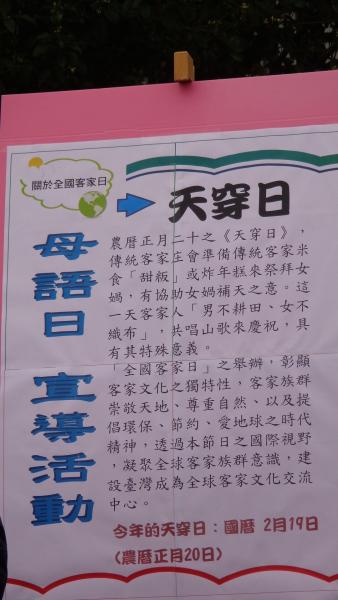 關於全國客家日
天穿日
母語日 宣導活動
農曆正月二十之《天穿日》,
傳統客家庄會準備傳統客家米
食「甜粄」或炸年糕來祭拜女
媧,有協助女媧補天之意。這
一天客家人「男不耕田、女不
織布」,共唱山歌來慶祝,具
有其特殊意義。
「全國客家日」之舉辦,彰顯
客家文化之獨特性,客家族群
崇敬天地、尊重自然、以及提
倡環保、節約、愛地球之時代
精神,透過本節日之國際視野
,凝聚全球客家族群意識,建
設臺灣成為全球客家文化交流
中心。
今年的天穿日:國曆 2月19日
(農曆正月20日)